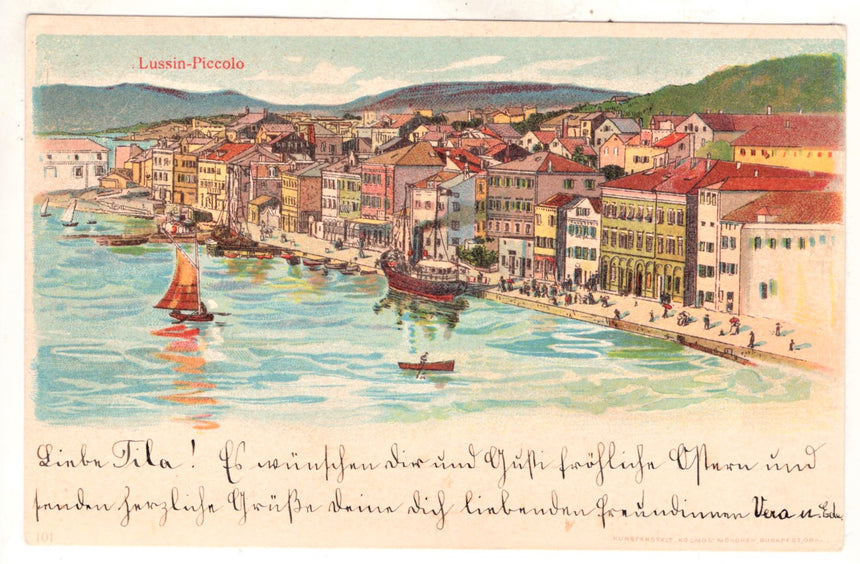 Lussin-Piccolo
Liebe Tila! Es wünschen dir und Gusti fröhliche Ostern und
senden herzliche Grüße deine dich liebenden Freundinnen Vera u.
101
KUNSTANSTALT KOSMOS MÜNCHEN, BUDAPEST,